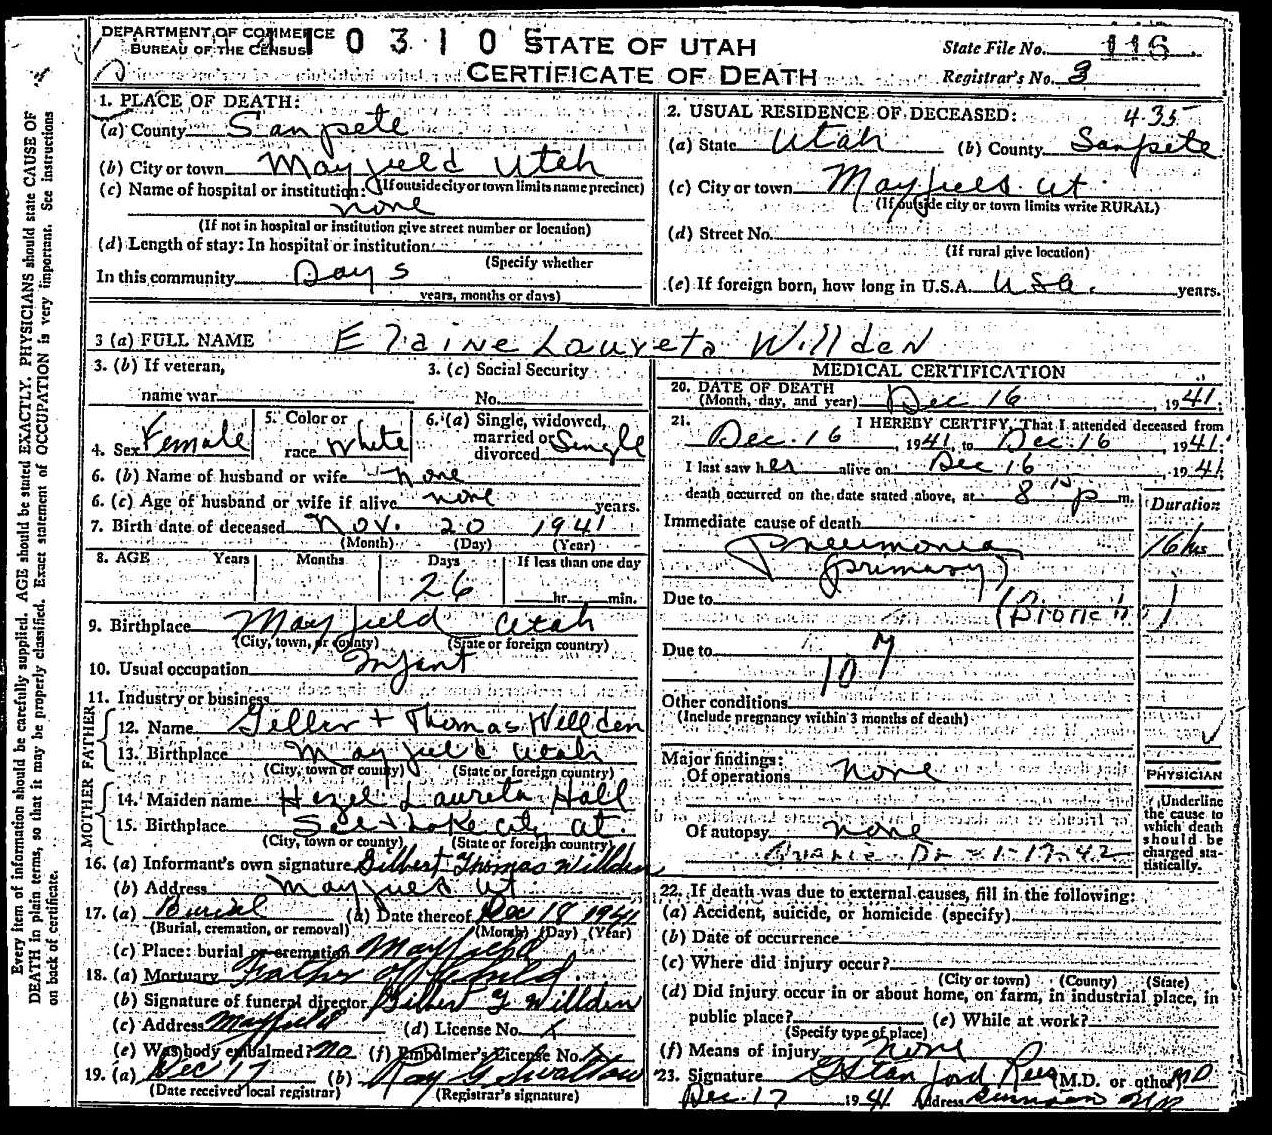 DEPARTMENT OF COMMERCE
BUREAU OF THE CENSUS
0 3 1 0
STATE OF UTAH
CERTIFICATE OF DEATH
State File No. 116
Registrar's No. 3
Every item of information should be carefully supplied. AGE should be stated EXACTLY. PHYSICIANS should state CAUSE OF
DEATH in plain terms, so that it may be properly classified. Exact statement of OCCUPATION is very important. See instructions
on back of certificate.
1. PLACE OF DEATH:
(a) County Sanpete
(b) City or town Mayfield Utah
(If outside city or town limits name precinct)
(c) Name of hospital or institution:
none
(If not in hospital or institution give street number or location)
(d) Length of stay: In hospital or institution
(Specify whether
In this community Days
years, months or days)
2. USUAL RESIDENCE OF DECEASED: 435
(a) State Utah (b) County Sanpete
(c) City or town Mayfield Ut.
(If outside city or town limits write RURAL)
(d) Street No.
(If rural give location)
(e) If foreign born, how long in U.S.A. USA. years.
3 (a) FULL NAME Elaine Laureta Willden
3. (b) If veteran,
name war
3. (c) Social Security
No.
4. Sex Female
5. Color or
race White
6. (a) Single, widowed,
married or
divorced Single
6. (b) Name of husband or wife none
6. (c) Age of husband or wife if alive none years.
7. Birth date of deceased Nov. 20 1941
(Month) (Day) (Year)
8. AGE Years Months Days If less than one day
26 hr. min.
9. Birthplace Mayfield Utah
(City, town, or county) (State or foreign country)
10. Usual occupation Infant
11. Industry or business
FATHER
12. Name Thomas Willden
13. Birthplace Mayfield Utah
(City, town or county) (State or foreign country)
MOTHER
14. Maiden name Hazel Laureta Hall
15. Birthplace Salt Lake City Ut.
(City, town or county) (State or foreign country)
16. (a) Informant's own signature Gilbert Thomas Willden
(b) Address Mayfield Ut
17. (a) Burial (b) Date thereof Dec 18 1941
(Burial, cremation, or removal) (Month) (Day) (Year)
(c) Place: burial or cremation Mayfield
18. (a) Mortuary Father of Child
(b) Signature of funeral director Gilbert T Willden
(c) Address Mayfield (d) License No. X
(e) Was body embalmed? no (f) Embalmer's License No. X
19. (a) Dec 17 (b) Ray G Swallow
(Date received local registrar) (Registrar's signature)
MEDICAL CERTIFICATION
20. DATE OF DEATH
(Month, day, and year) Dec 16, 1941.
21. I HEREBY CERTIFY, That I attended deceased from
Dec. 16 1941, to Dec. 16, 1941.
I last saw her alive on Dec 16, 1941.
death occurred on the date stated above, at 8 p m.
Duration
Immediate cause of death
Pneumonia 16 hrs
(primary)
Due to (Bronch.)
Due to
107
Other conditions
(Include pregnancy within 3 months of death)
Major findings:
Of operations none
Of autopsy none
1-17-42
PHYSICIAN
Underline
the cause to
which death
should be
charged sta-
tistically.
22. If death was due to external causes, fill in the following:
(a) Accident, suicide, or homicide (specify)
(b) Date of occurrence
(c) Where did injury occur?
(City or town) (County) (State)
(d) Did injury occur in or about home, on farm, in industrial place, in
public place? (e) While at work?
(Specify type of place)
(f) Means of injury none
23. Signature G Stanford Rees (M.D. or other) MD
Dec. 17 1941 Address Gunnison